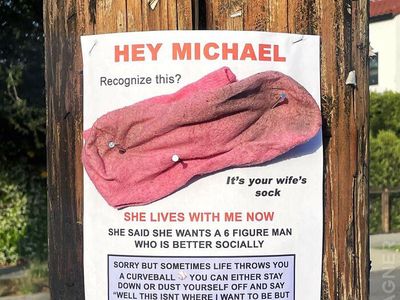 HEY MICHAEL
Recognize this?
It's your wife's
sock
SHE LIVES WITH ME NOW
SHE SAID SHE WANTS A 6 FIGURE MAN
WHO IS BETTER SOCIALLY
SORRY BUT SOMETIMES LIFE THROWS YOU
A CURVEBALL ⚾ YOU CAN EITHER STAY
DOWN OR DUST YOURSELF OFF AND SAY
"WELL THIS ISNT WHERE I WANT TO BE BUT